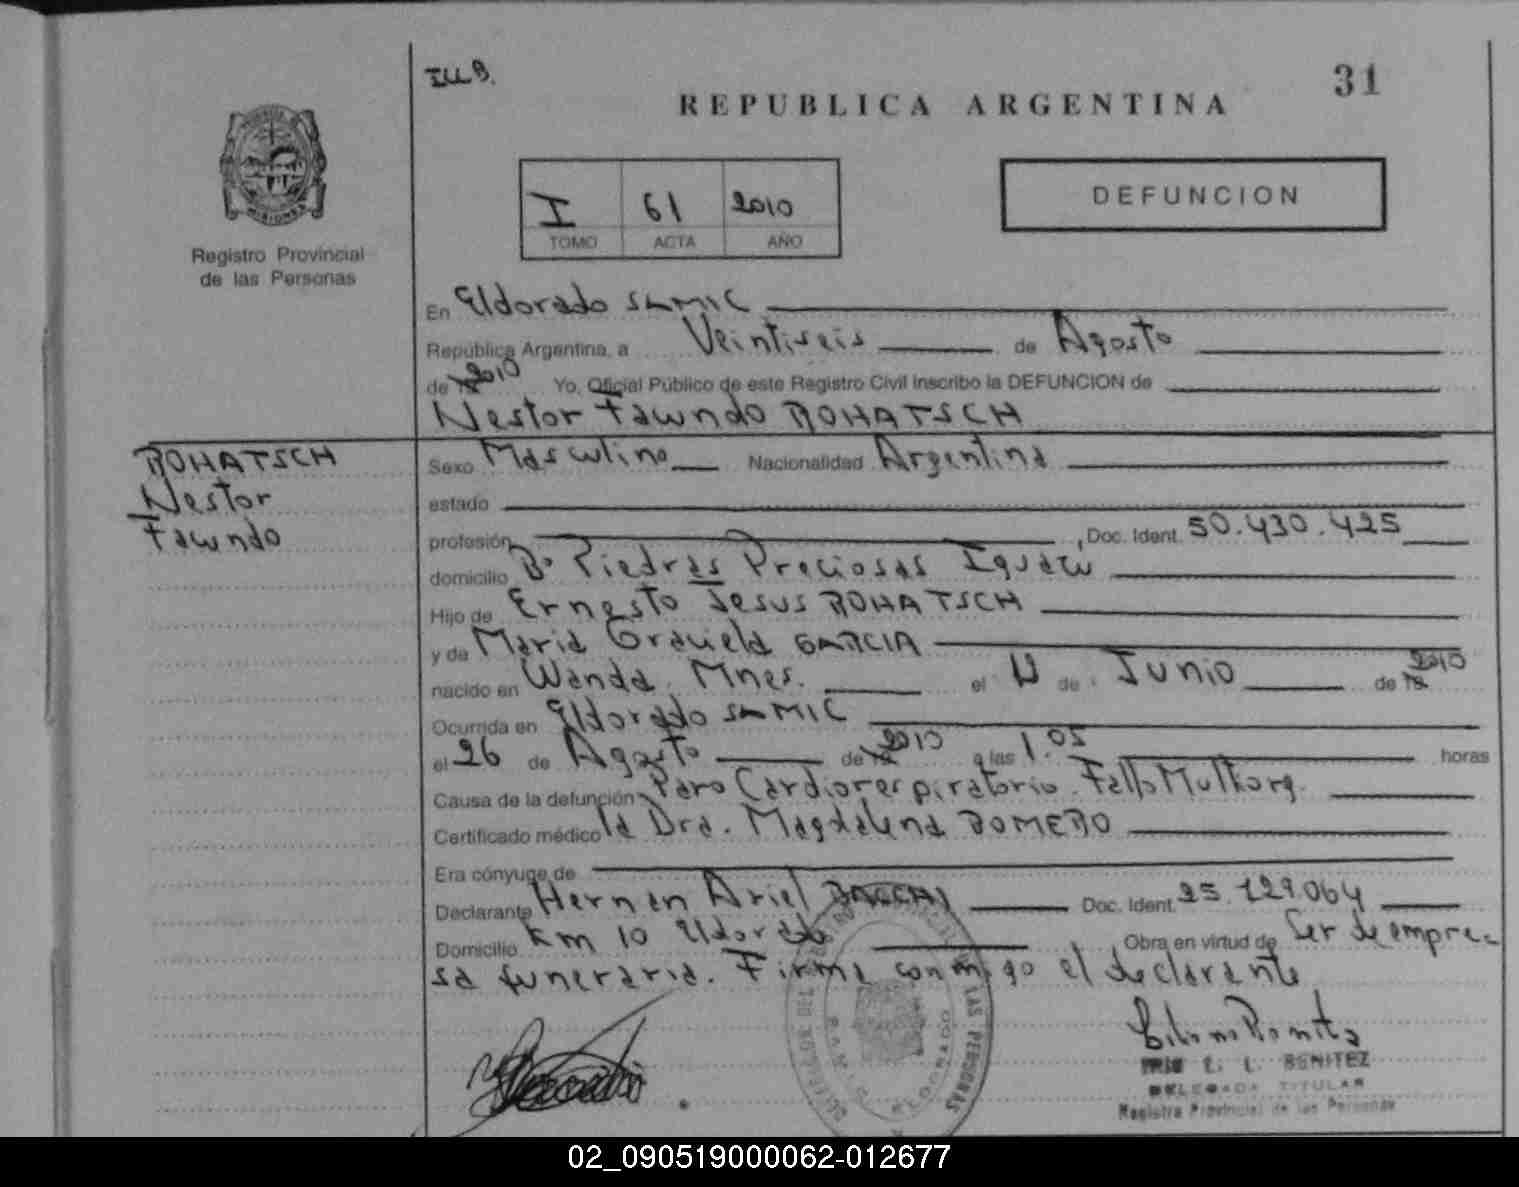 ILLB.
31
REPUBLICA ARGENTINA
I 61 2010
TOMO ACTA AÑO
DEFUNCION
MISIONES
Registro Provincial
de las Personas
En Eldorado SAMIC
República Argentina, a Veintiseis de Agosto
de 2010 Yo, Oficial Público de este Registro Civil inscribo la DEFUNCION de
Nestor Facundo ROHATSCH
ROHATSCH
Nestor
Facundo
Sexo Masculino Nacionalidad Argentina
estado
profesión Doc. Ident. 50.430.425
domicilio Bº Piedras Preciosas Iguazú
Hijo de Ernesto Jesus ROHATSCH
y de Maria Graciela GARCIA
nacido en Wanda, Mnes. el de Junio de 2010
Ocurrida en Eldorado SAMIC
el 26 de Agosto de 2010 a las 1.05 horas
Causa de la defunción Paro Cardiorespiratorio. Falla Multiorg.
Certificado médico la Dra. Magdalena ROMERO
Era cónyuge de
Declarante Hernan Ariel Doc. Ident. 25.129.064
Domicilio Km 10 Eldorado Obra en virtud de Ser de empre-
sa funeraria. Firma conmigo el declarante
LAS PERSONAS
E. L. BENITEZ
DELEGADA TITULAR
Registro Provincial de las Personas
02_090519000062-012677